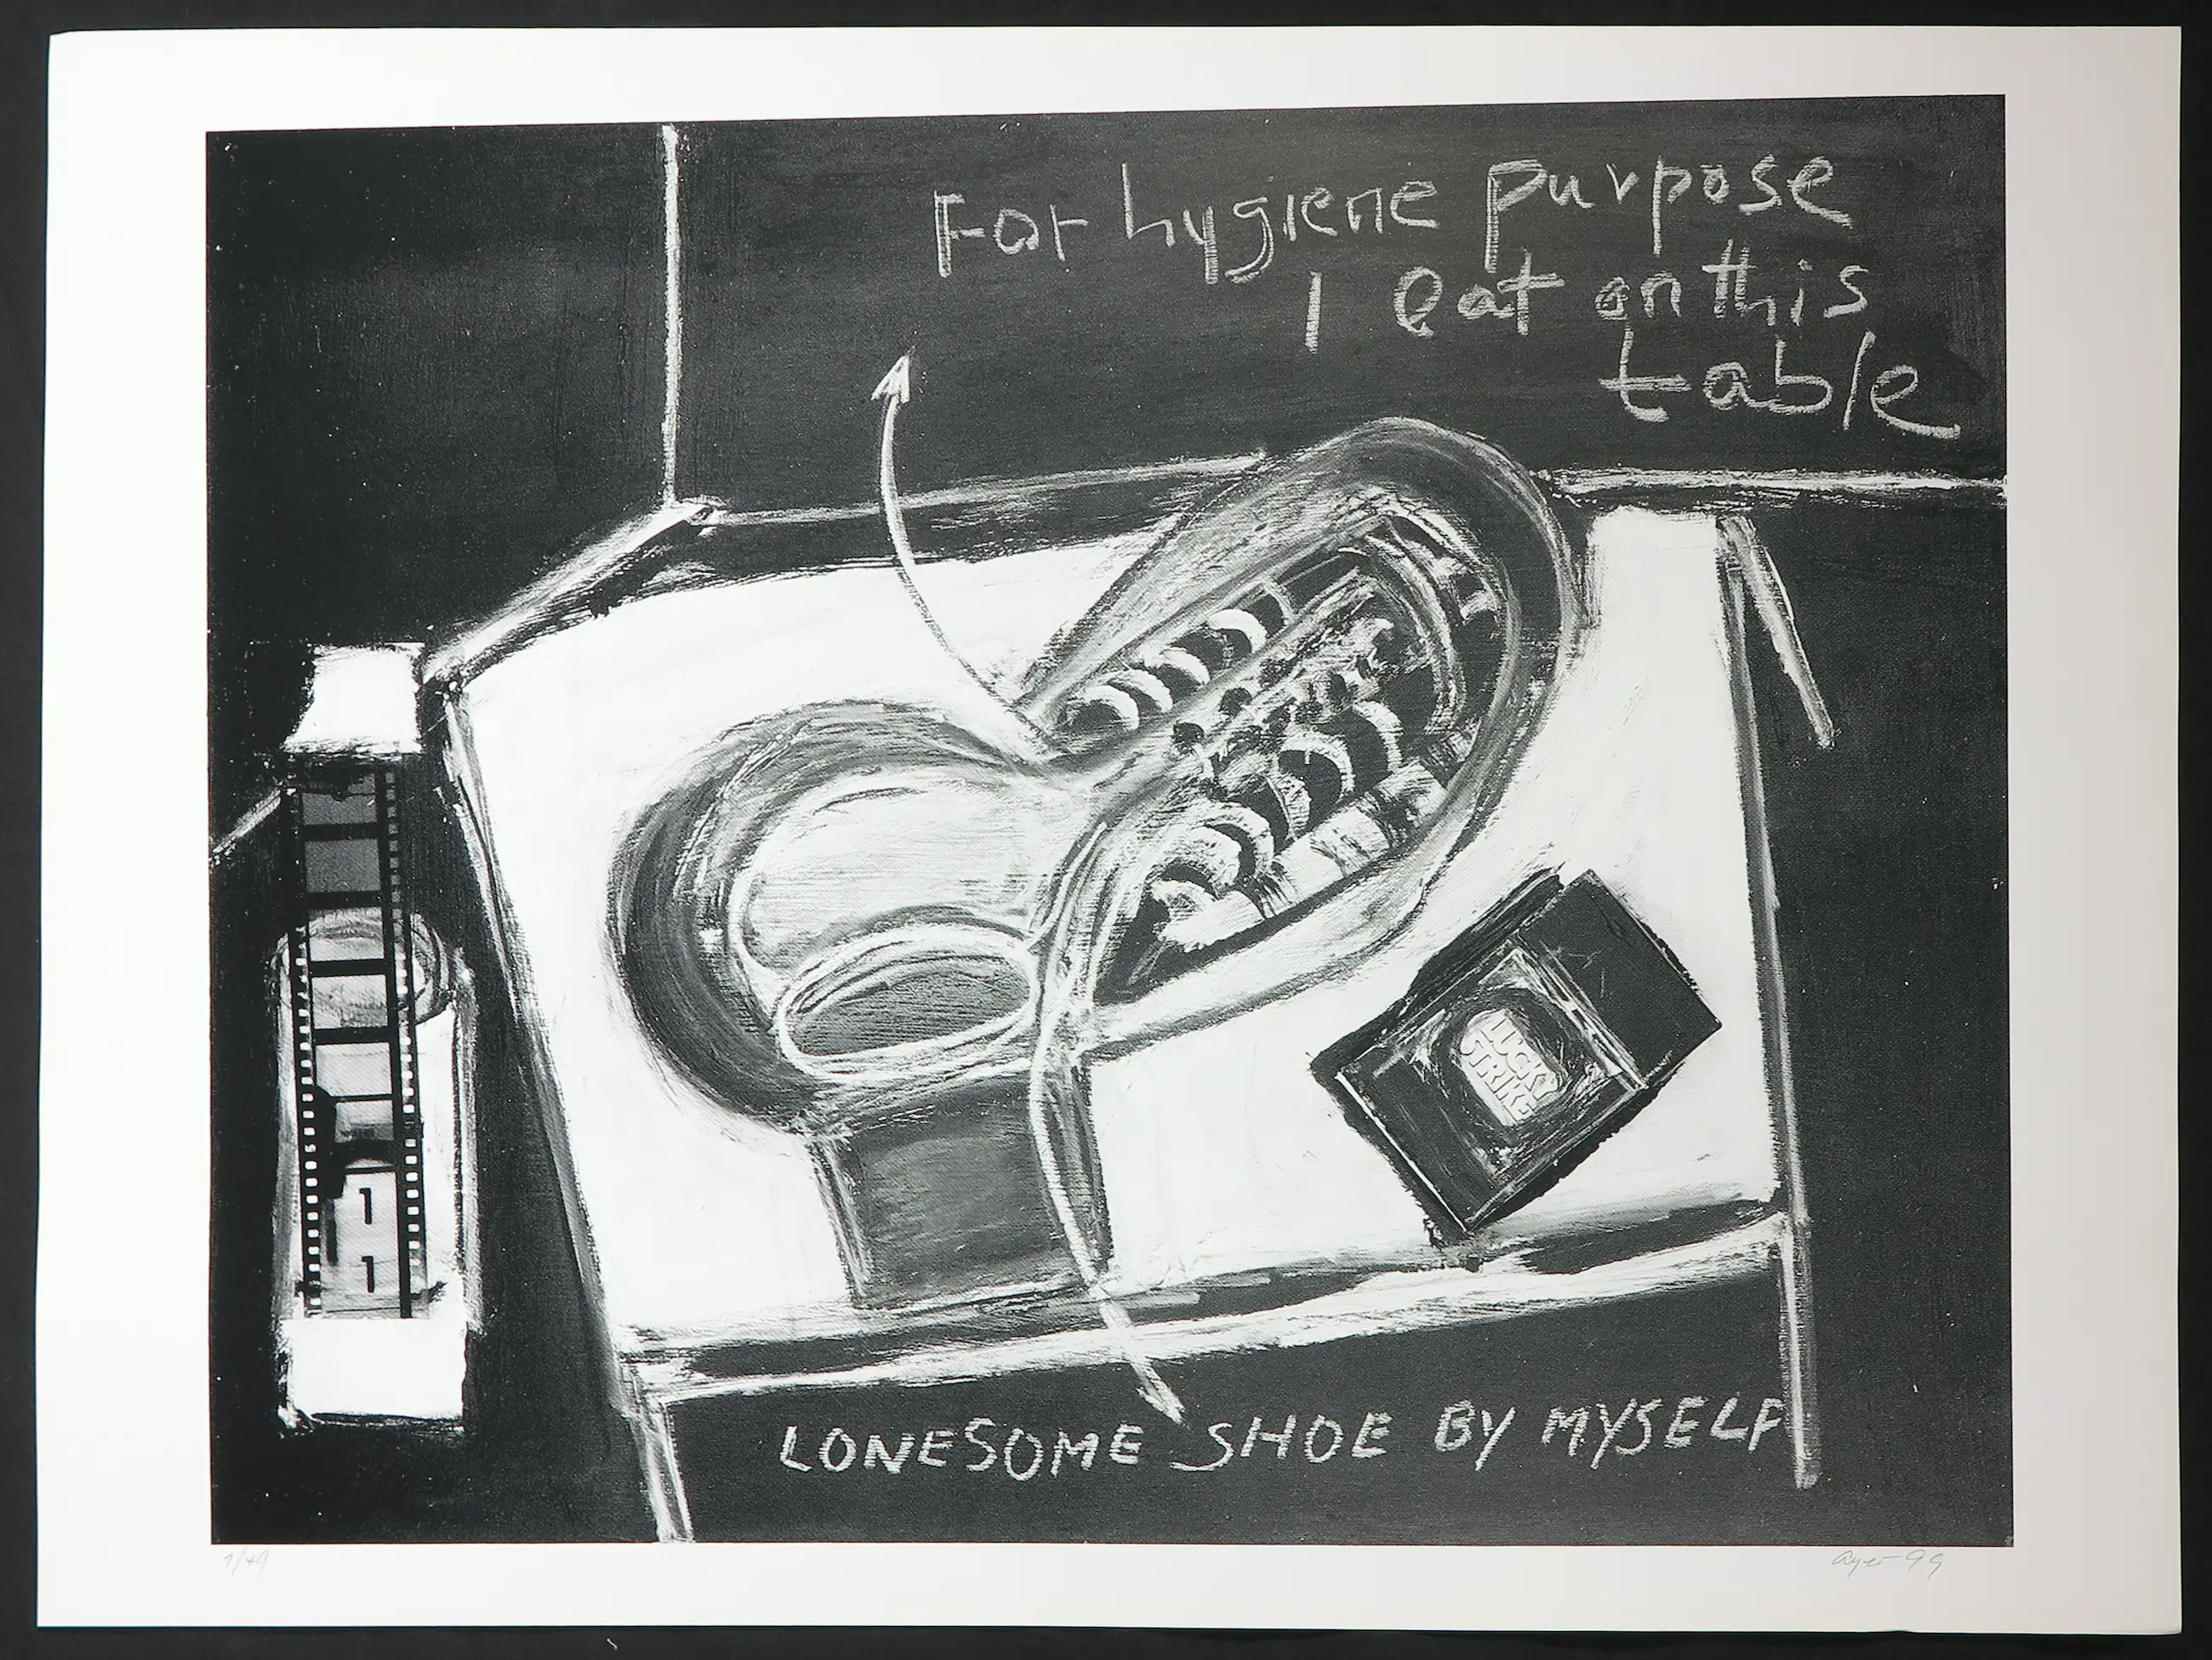 For hygiene purpose
I eat on this
table
LUCKY
STRIKE
1
1
LONESOME SHOE BY MYSELF
1/49
99